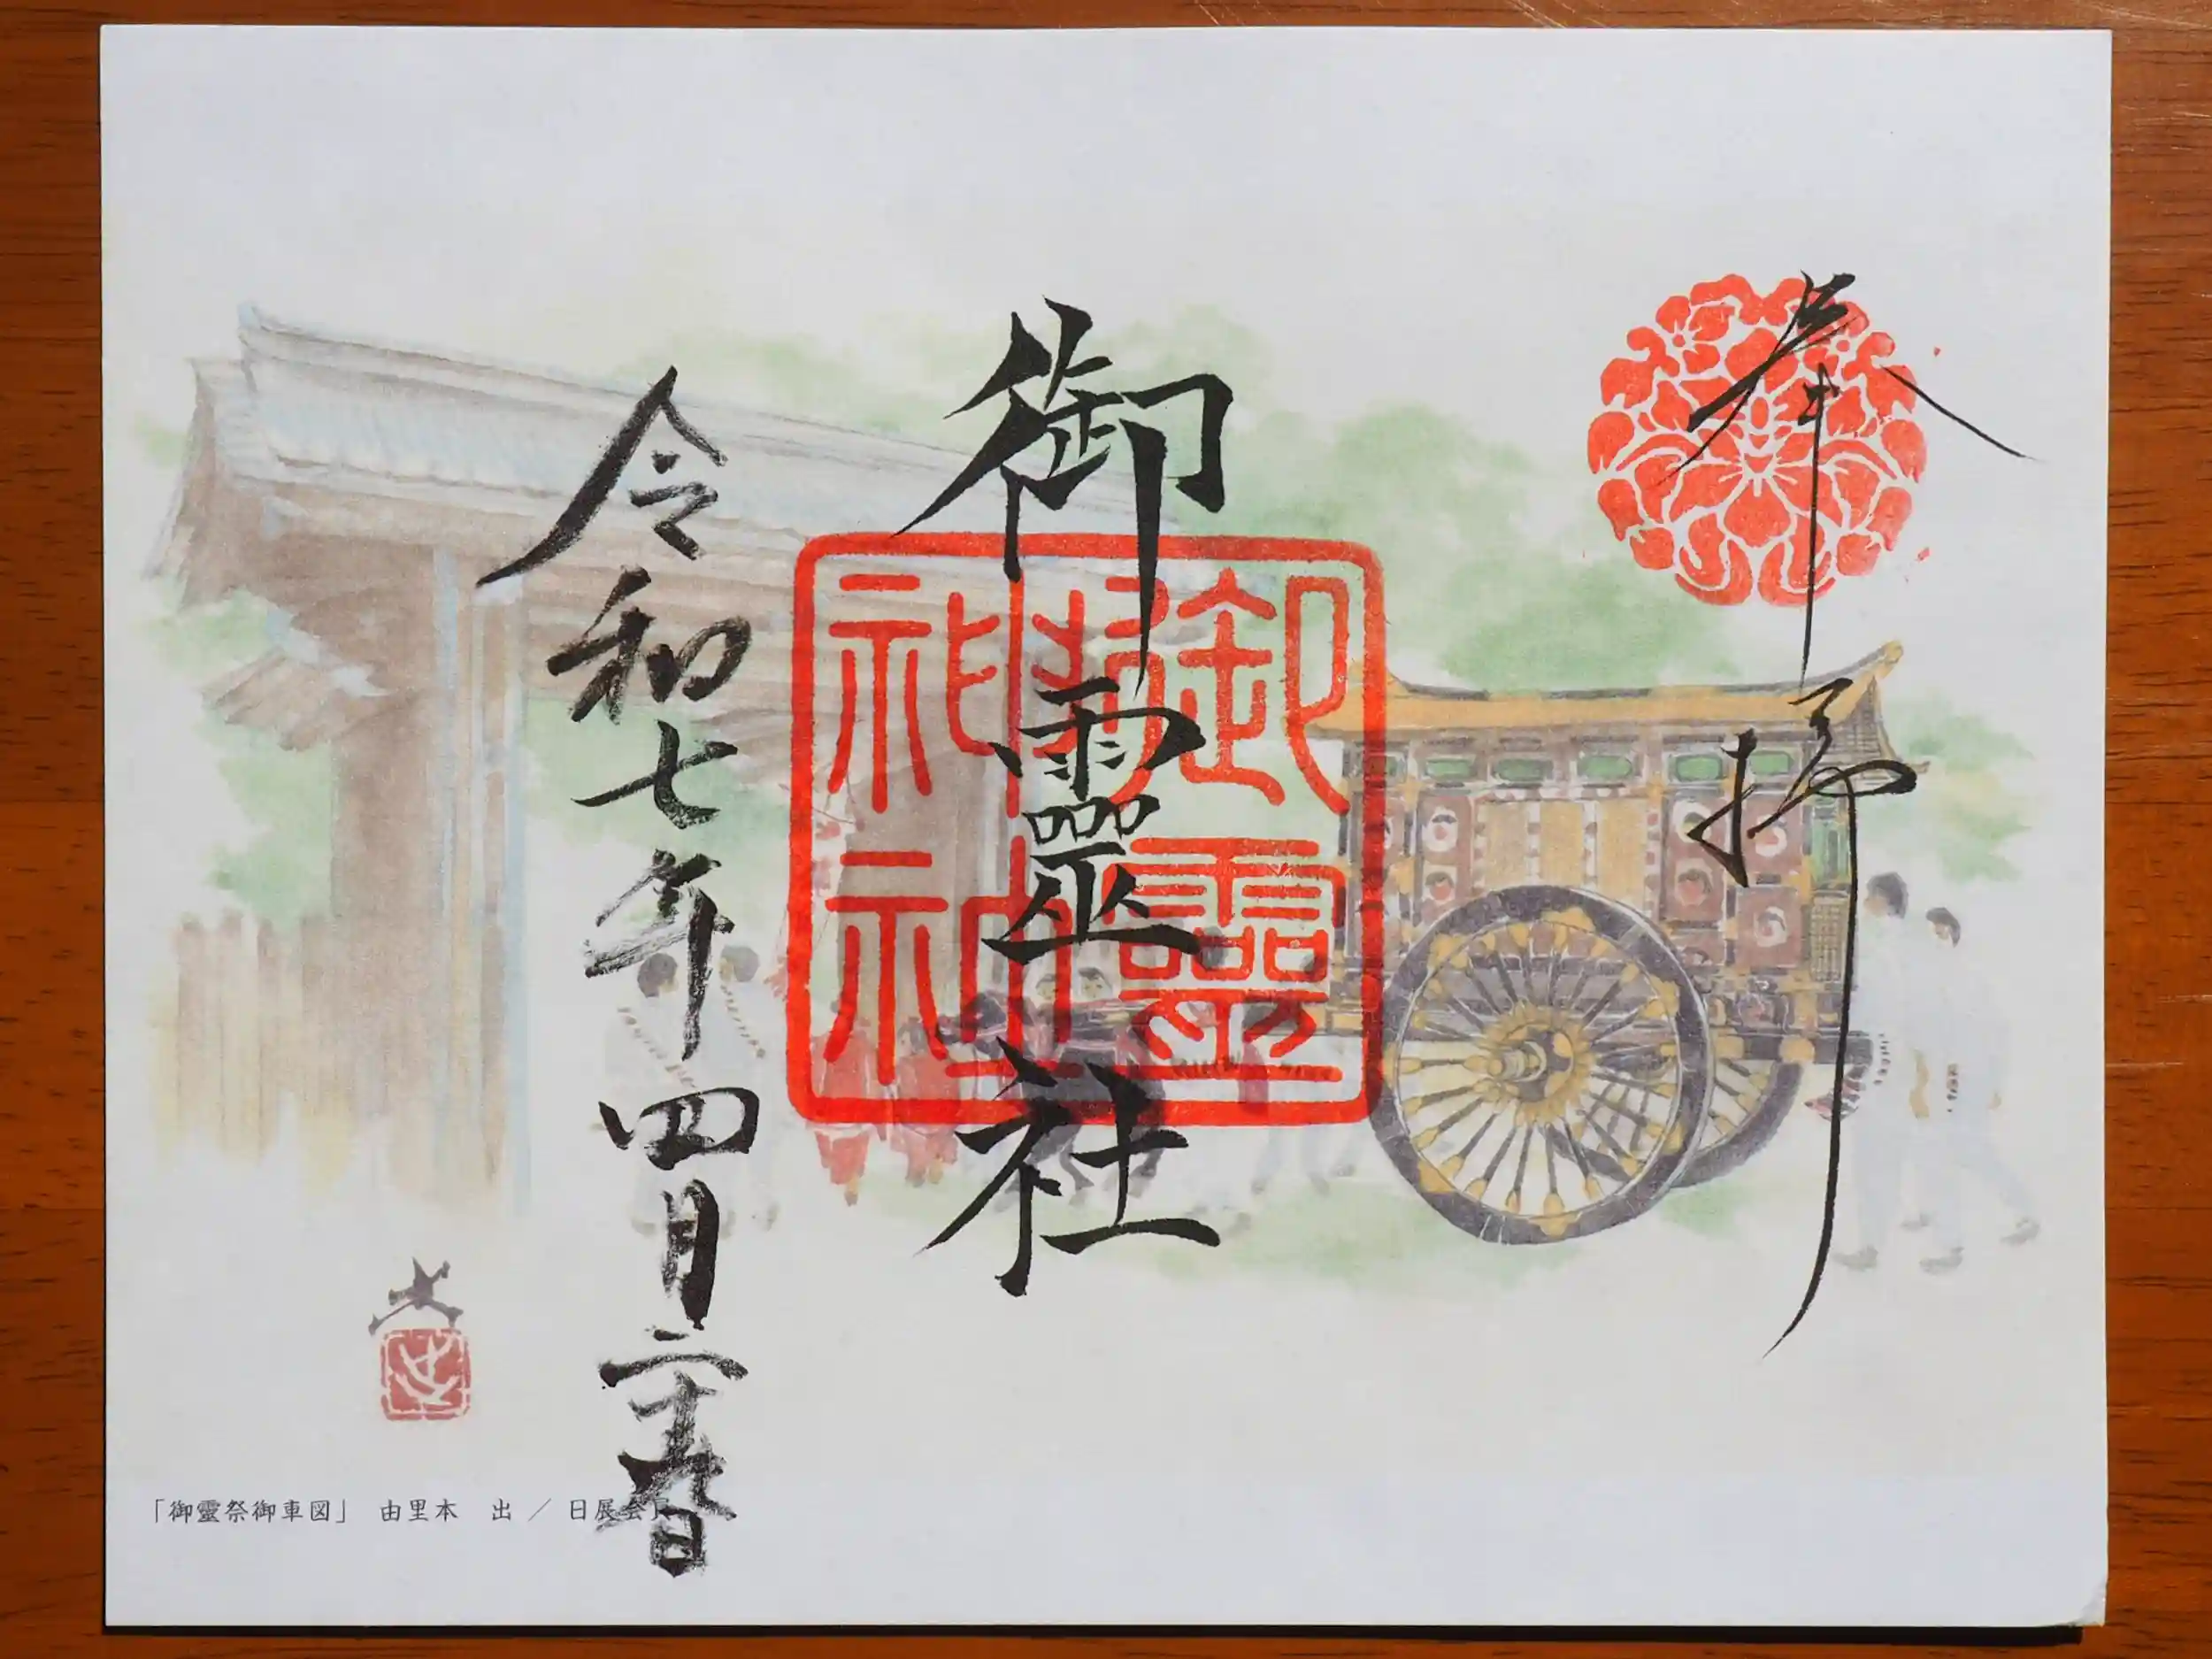 奉拝
御靈社
御靈
令和七年四月二十
日
「御靈祭御車図」　由里本　出 ／ 日展会員